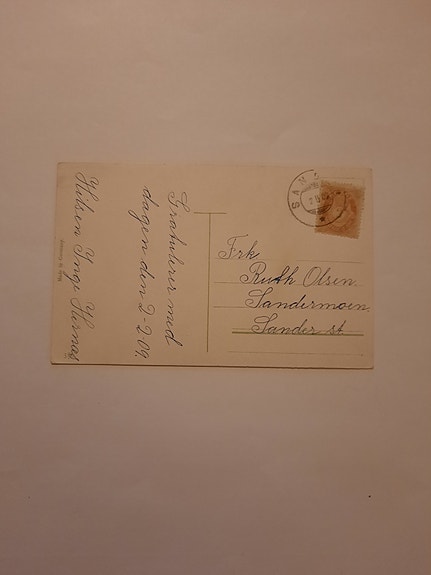 Gratulerer med
dagen den 2-2 09.
Hilsen Inga
Frk
Ruth Olsen
Sandermoen
Sander st
SAN